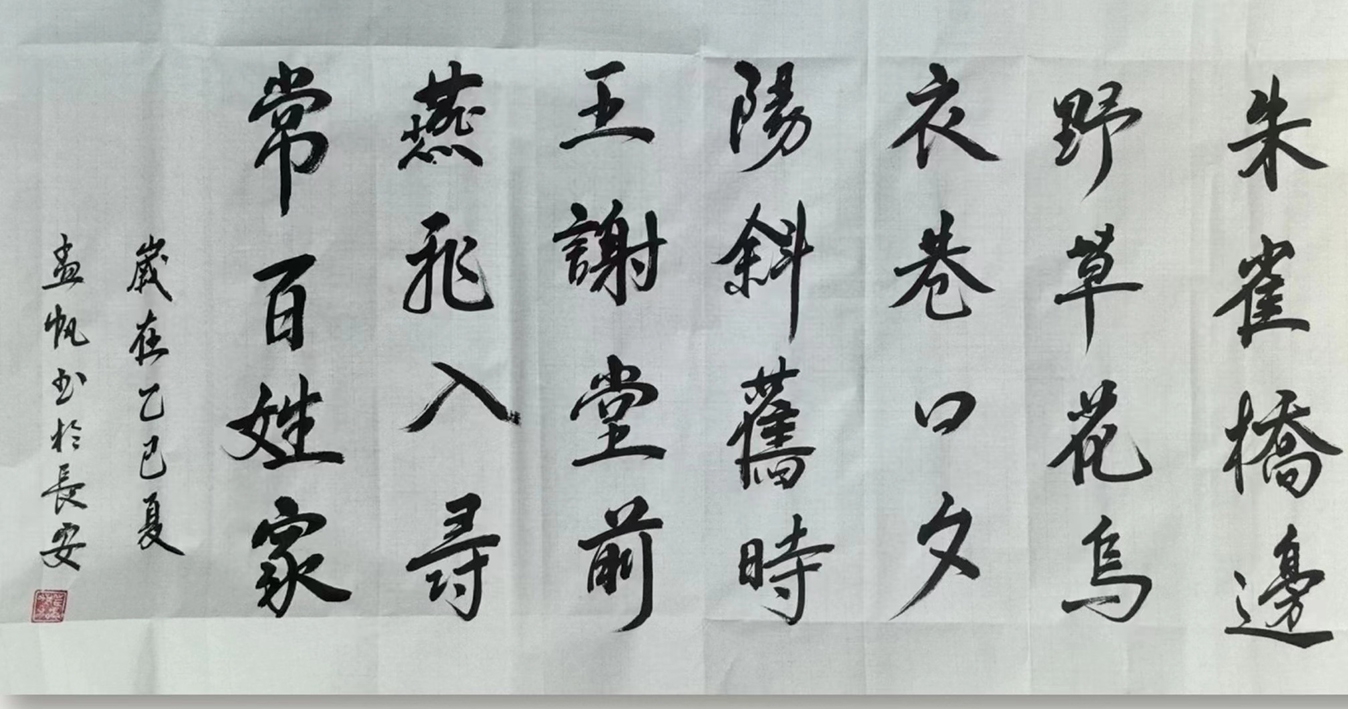 朱雀橋邊
野草花烏
衣巷口夕
陽斜舊時
王謝堂前
燕飛入尋
常百姓家
歲在乙巳夏
孟帆书於長安